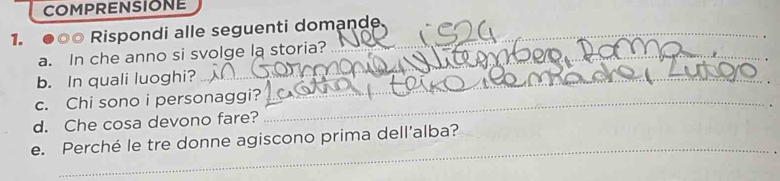 COMPRENSIONE
1. ●○○ Rispondi alle seguenti domande.
a. In che anno si svolge la storia? Nel 1524
b. In quali luoghi? in Germania, Wittemberg, Roma
c. Chi sono i personaggi? la madre, Lutero
d. Che cosa devono fare?
e. Perché le tre donne agiscono prima dell'alba?